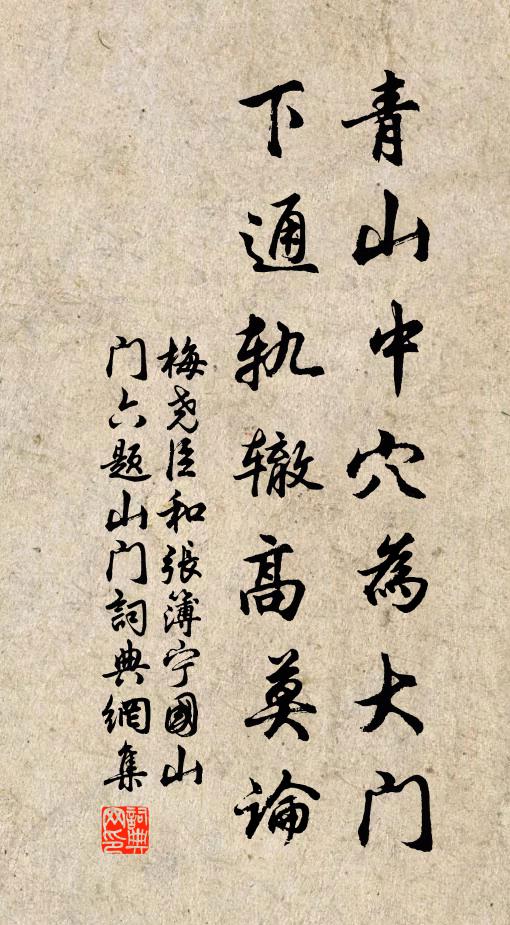 青山中穴為大门
下通轨辙高莫論
梅尧臣和張簿宁國山
门六题山门詞典網集
詞典网印